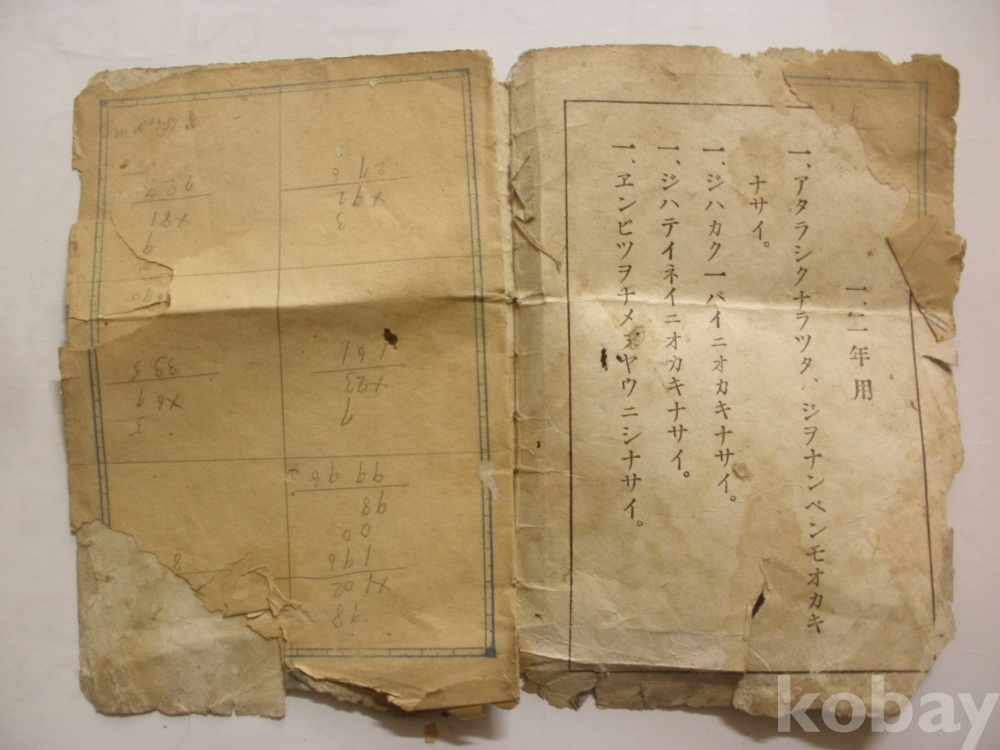 一、二年用
一、アタラシクナラツタ、ジヲナンベンモオカキ
ナサイ。
一、ジハカク一パイニオカキナサイ。
一、ジハテイネイニオカキナサイ。
一、ヱンピツヲナメヌヤウニシナサイ。
3
×92
276
7
×23
161
98
×102
196
00
98
9996
9
×81
729
5
×67
335
8
kobay